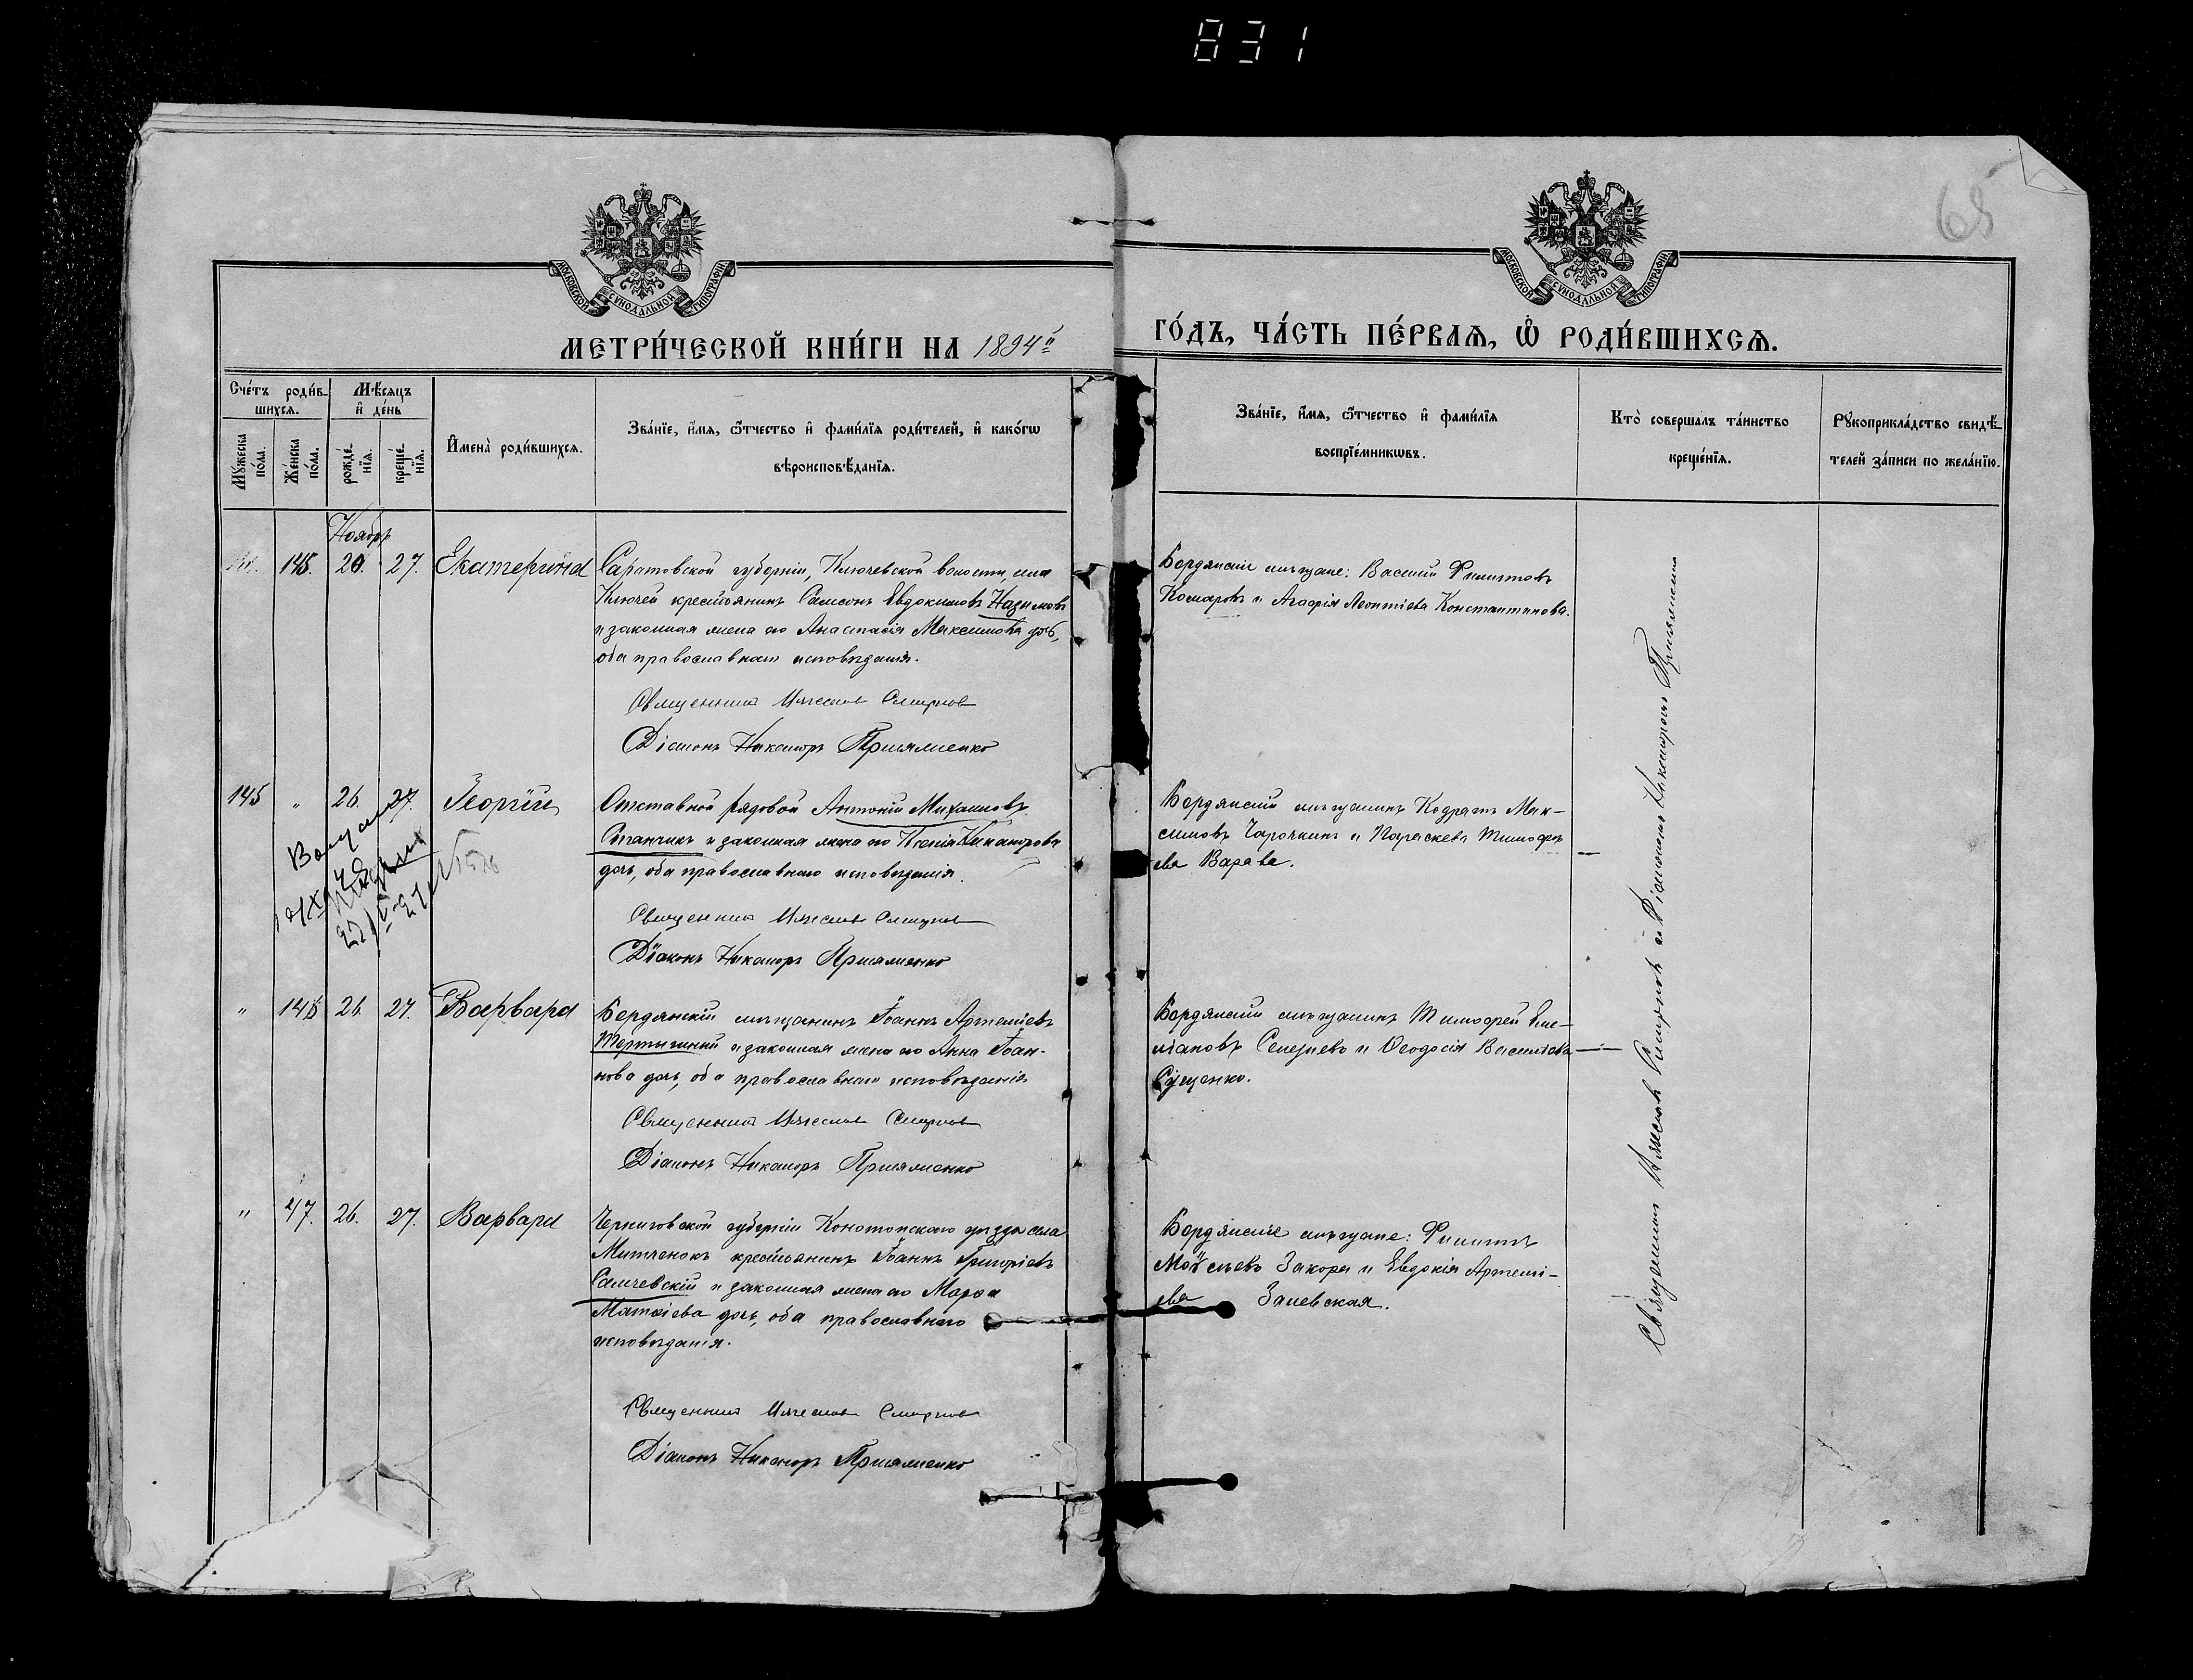 831
65
МОСКОВСКОЙ СѴНОДАЛЬНОЙ ТИПОГРАФІИ
МОСКОВСКОЙ СѴНОДАЛЬНОЙ ТИПОГРАФІИ
МЕТРИ́ЧЕСКОЙ КНИ́ГИ НА 1894й
ГО́ДЪ, ЧА́СТЬ ПЕ́РВАѦ, Ѡ҆ РОДИ́ВШИХСѦ.
Сче́тъ роди́вшихсѧ.
Мѣ́сѧцъ и҆ де́нь
Мꙋ́жеска по́ла.
Же́нска по́ла.
рожде́нїѧ.
креще́нїѧ.
И҆мена̀ роди́вшихсѧ.
Зва́нїе, и҆́мѧ, ѻ҆́тчество и҆ фами́лїѧ роди́телей, и҆ како́гѡ
вѣроисповѣ́данїѧ.
Зва́нїе, и҆́мѧ, ѻ҆́тчество и҆ фами́лїѧ
воспрїе́мникѡвъ.
Кто̀ соверша́лъ та́инство
креще́нїѧ.
Рꙋкоприкла́дство свидѣ́-
телей за́писи по жела́нїю.
Ноябр
145. 20. 27. Екатерина
Саратовской губерніи, Ключевской волости, села
Ключей крестьянинъ Самсонъ Евдокимовъ Назимовъ
и законная жена его Анастасія Максимова дочь,
оба православнаго исповѣданія.
Священникъ Смирновъ
Діаконъ Никаноръ
Бердянскіе мѣщане: Василій Филиповъ
Комаровъ и Агафія Леонтіева Константинова.
145 " 26. 27. Георгій
Отставной рядовой Антоній Михаиловъ
и законная жена его Ксенія Никанорова
дочь, оба православнаго исповѣданія.
Священникъ Смирновъ
Діаконъ Никаноръ
Бердянскій мѣщанинъ Кодратъ Мак-
симовъ Чарочкинъ и Параскева Тимофе
ева Варава.
" 146 26. 27. Варвара
Бердянскій мѣщанинъ Іоаннъ Артеміевъ
и законная жена его Анна Іоан-
нова дочь, оба православнаго исповѣданія
Священникъ Смирновъ
Діаконъ Никаноръ
Бердянскій мѣщанинъ Тимофей Еме-
ліановъ и Ѳеодосія Василіева
Сущенко.
" 47. 26. 27. Варвара
Черниговской губерніи Конотопскаго уѣзда села
Митченокъ крестьянинъ Іоаннъ Григоріевъ
Самчевскій и законная жена его Марѳа
Матѳіева дочь, оба православнаго
исповѣданія.
Священникъ Смирновъ
Діаконъ Никаноръ
Бердянскіе мѣщане: Филиппъ
Моѵсѣевъ Закора и Евдокія Артемі-
ева Заневская.
Священникъ Смирновъ съ Діакономъ Никаноромъ